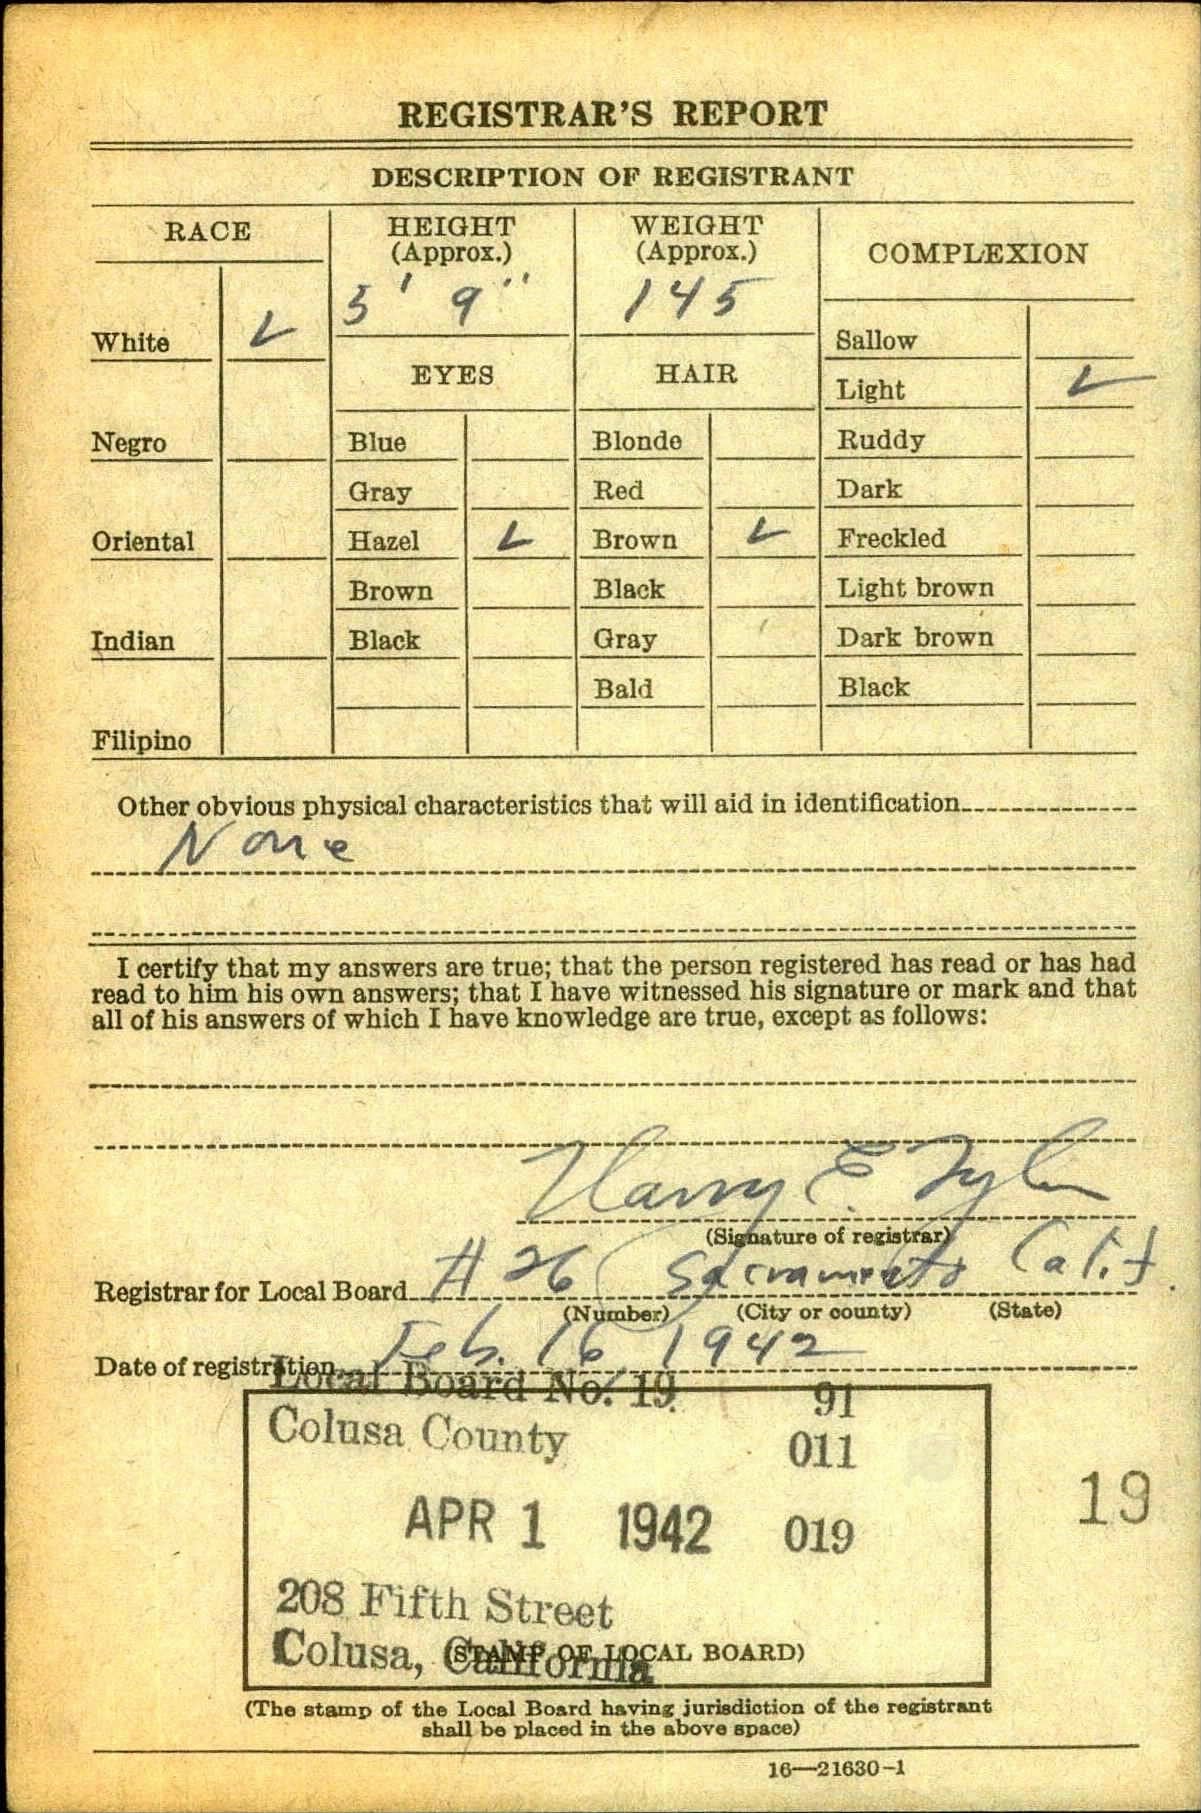 REGISTRAR'S REPORT
DESCRIPTION OF REGISTRANT
RACE
White ✓
Negro
Oriental
Indian
Filipino
HEIGHT
(Approx.)
5' 9"
EYES
Blue
Gray
Hazel ✓
Brown
Black
WEIGHT
(Approx.)
145
HAIR
Blonde
Red
Brown ✓
Black
Gray
Bald
COMPLEXION
Sallow
Light ✓
Ruddy
Dark
Freckled
Light brown
Dark brown
Black
Other obvious physical characteristics that will aid in identification
None
I certify that my answers are true; that the person registered has read or has had
read to him his own answers; that I have witnessed his signature or mark and that
all of his answers of which I have knowledge are true, except as follows:
Harry E. Tyler
(Signature of registrar)
Registrar for Local Board # 26 Sacramento Calif.
(Number) (City or county) (State)
Date of registration Feb. 16 1942
Local Board No. 19 91
Colusa County 011
APR 1 1942 019
19
208 Fifth Street
Colusa, California
(STAMP OF LOCAL BOARD)
(The stamp of the Local Board having jurisdiction of the registrant
shall be placed in the above space)
16—21630-1